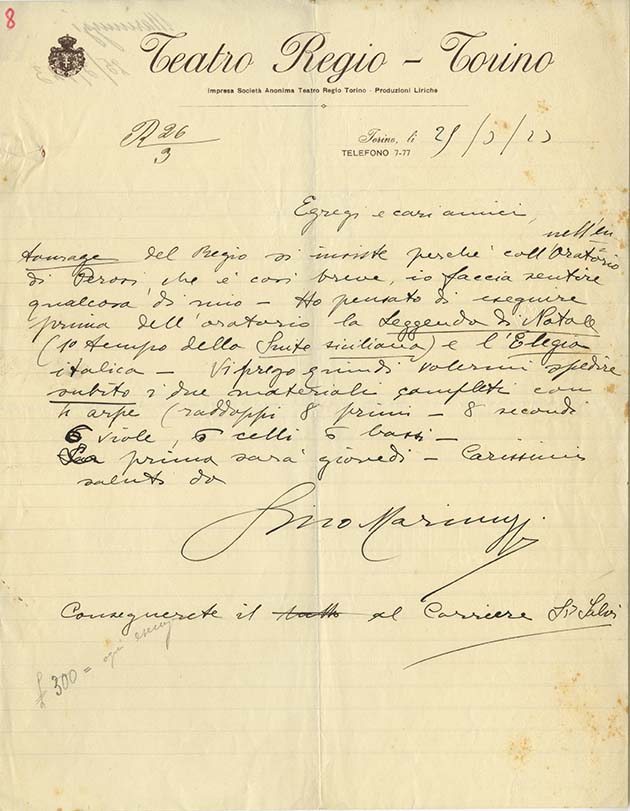 8
Teatro Regio - Torino
Impresa Società Anonima Teatro Regio Torino - Produzioni Liriche
R 26/3
Torino, li 25/3/23
TELEFONO 7-77
Egregi e cari amici,
nell'en
tourage del Regio si insiste perchè coll'Oratorio
di Perosi, che è così breve, io faccia sentire
qualcosa di mio - Ho pensato di eseguire
prima dell'oratorio la Leggenda di Natale
(1º tempo della Suite siciliana) e l'Elegia
italica - Vi prego quindi volermi spedire
subito i due materiali completi con
arpe (raddoppi 8 primi - 8 secondi
6 viole, 6 celli 6 bassi -
La prima sarà giovedì - Carissimi
saluti da
Gino Marinuzzi
Consegnerete il tutto al Corriere Salvi
£ 300 = ogni